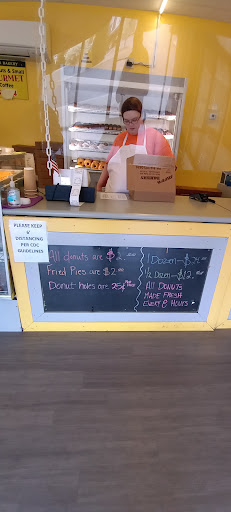 BAKERY
& Small
GOURMET
Coffee
PLEASE KEEP
6'
DISTANCING
PER CDC
GUIDELINES
All donuts are $2.00
Fried Pies are $2.00
Donut holes are 25¢
1 Dozen - $24.00
1/2 Dozen - $12.00
All DONUTS
MADE FRESH
EVERY 8 HOURS